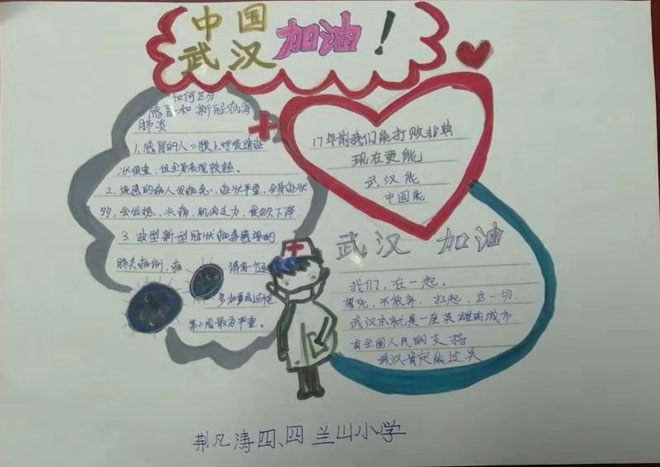 中国
武汉 加油！
如何区分
感冒和新冠病毒
肺炎
1.感冒的人一般上呼吸道症
状很重，但全身表现较轻。
2.流感的病人发病急，症状严重，全身症状
多，会发烧、头痛，肌肉乏力，食欲下降
3.典型新型冠状病毒感染的
肺炎病例，
第二周最为严重。
17年前我们能打败非典
现在更能
武汉能
中国能
武汉 加油
我们，在一起。
不放弃，扛起，这一切
武汉本就是一座英雄的城市
有全国人民的支持
武汉肯定能过关
荆凡涛 四、四 兰山小学